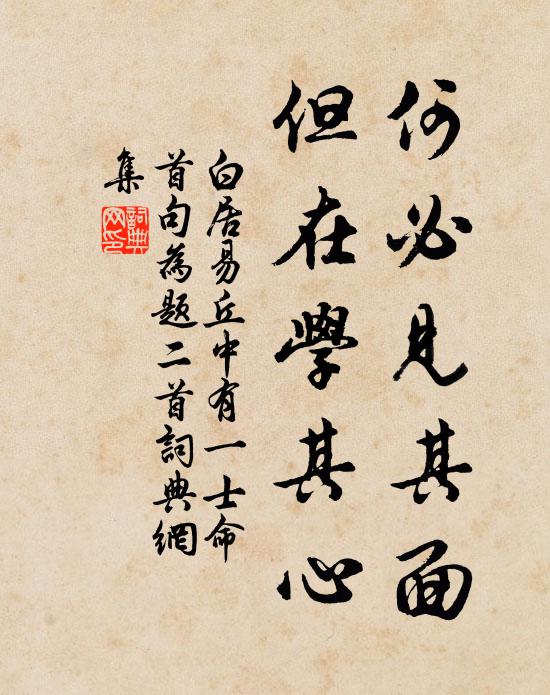 何必見其面
但在學其心
白居易丘中有一士命
首句為題二首詞典網
集
詞典
网印